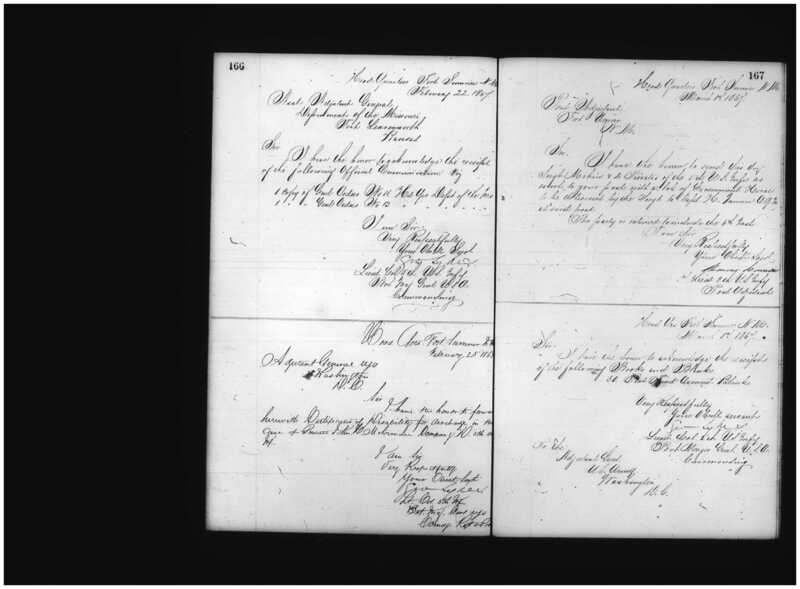 166
Head Quarters Fort Sumner N.M.
February 22 1867
Asst Adjutant General
Department of the Missouri
Fort Leavenworth
Kansas
Sir
I have the honor to acknowledge the receipt
of the following Official Communications Viz
1 Copy of Genl Orders No 11 Hd Qrs Dept of the Mo
1 " " Genl Orders No 12 " " " "
I am Sir
Very Respectfully
Your Obdt Servt
Geo Sykes
Lieut Col 5th U.S. Infy
Bvt Maj Genl U.S.A.
Commanding
Head Qrs Fort Sumner N.M.
February 25 1867
Adjutant General USA
Washington
D.C.
Sir
I have the honor to forward
herewith Certificates of Disability for discharge in the
case of Private
Company
5th
Inf.
I am Sir
Very Respectfully
Your Obedient Servt
Geo Sykes
Lt. Col. 5th Inf
Bvt. Maj. Genl USA
Comdg
167
Head Quarters Fort Sumner N.M.
March 1st 1867.
Post Adjutant
Fort Union
N.M.
Sir
I have the honor to send this day
Sergt
Privates of the 5th U.S. Infy as
escort to your post with a lot of Government Horses
to be
by the Sergt to Capt
at your post.
The party is rationed to include the 8th Inst.
I am Sir
Very Respectfully
Your Obdt Servt
Lieut 5th U.S. Infy
Post Adjutant
Head Qrs Fort Sumner N.M.
March 1st 1867.
Sir
I have the honor to acknowledge the receipt
of the following Books and Blanks
50
Blanks
Very Respectfully
Your Obdt servant
Geo Sykes
Lieut Col 5th U.S. Infy
Bvt Major Genl U.S.A.
Commanding
To The
Adjutant Genl
U.S. Army
Washington
D.C.